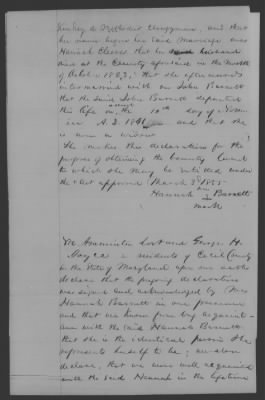 Kinsey a Methodist Clergyman, and that
her name before her said marriage was
Hannah that her husband
died at the County aforesaid in the month
of October 1823, that she afterwards
intermarried with one John Barrett
that the said John Barrett departed
this life on the day of
A.D. 18 and that she
is now a widow
She makes this declaration for the
purpose of obtaining the bounty land
to which she may be entitled under
the act approved March 3d 1855
Hannah Barrett
mark
We and George H.
residents of Cecil County
in the State of Maryland upon our oaths
declare that the foregoing declaration
was signed and acknowledged by Mrs
Hannah Barrett in our presence
and that we know from
with the said Hannah Barrett
that she is the identical person she
represents herself to be; we also
declare, that we were well acquainted
with the said Hannah in the lifetime